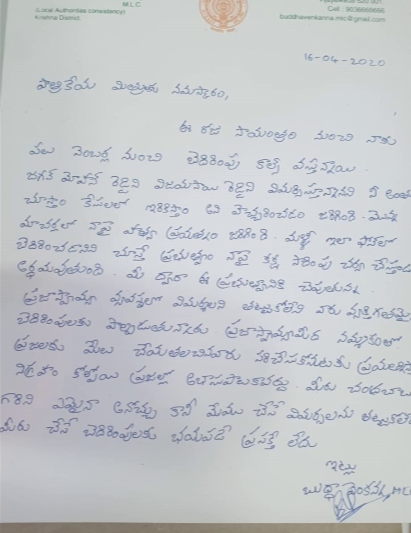 M.L.C.
(Local Authorities consistency)
Krishna District
Cell : 9036666666
buddhavenkanna.mlc@gmail.com
16-04-2020
పాత్రికేయ మిత్రులకు నమస్కారం,
ఈ రోజు సాయంత్రం నుంచి నాకు
పలు నెంబర్ల నుంచి బెదిరింపు కాల్స్ వస్తున్నాయి.
జగన్ మోహన్ రెడ్డిని విజయసాయి రెడ్డిని విమర్శిస్తున్నావని నీ అంతు
చూస్తాం కేసులలో ఇరికిస్తాం అని హెచ్చరించడం జరిగింది. మొన్న
మాచర్లలో నాపై హత్యా ప్రయత్నం జరిగింది. మళ్లీ ఇలా ఫోన్‌లో
బెదిరించడాన్ని చూస్తే ప్రభుత్వం నాపై కక్ష సాధింపు చర్య
అర్థమవుతుంది. మీ ద్వారా ఈ ప్రభుత్వానికి చెబుతున్నా
ప్రజాస్వామ్య వ్యవస్థలో విమర్శలని తట్టుకోలేని వారు వ్యక్తిగతమై
బెదిరింపులకు పాల్పడుతున్నారు. ప్రజాస్వామ్యంమీద నమ్మకంతో
ప్రజలకు మేలు చేయతలచినవారు
నిగ్రహం కోల్పోయి ప్రజల్లో మీరు చంద్రబాబు
గారిని ఏమైనా అనొచ్చు కానీ మేము చేసే విమర్శలను తట్టుకోలేక
మీరు చేసే బెదిరింపులకు భయపడే ప్రసక్తే లేదు
ఇట్లు
బుద్దా వెంకన్న, MLC